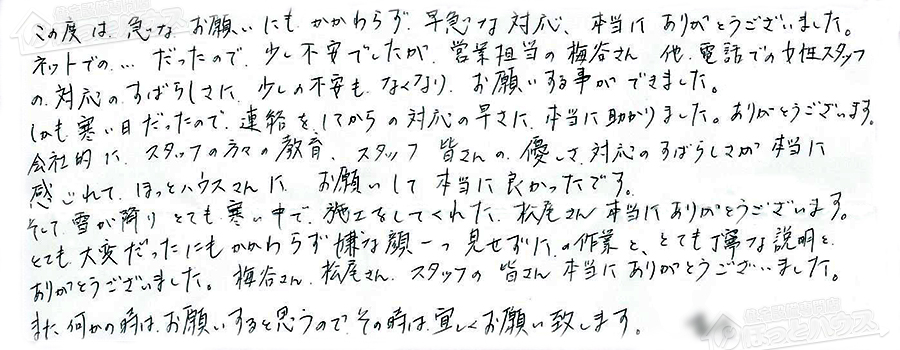 この度は、急なお願いにもかかわらず、早急な対応、本当にありがとうございました。
ネットでの…だったので、少し不安でしたが、営業担当の梅谷さん、他、電話での女性スタッフ
の対応のすばらしさに、少しの不安もなくなり、お願いする事ができました。
しかも寒い日だったので、連絡をしてからの対応の早さに、本当に助かりました。ありがとうございます。
会社的に、スタッフの方々の教育、スタッフ皆さんの優しさ、対応のすばらしさが本当に
感じれて、ほっとハウスさんに、お願いして本当に良かったです。
そして雪が降りとても寒い中で、施工をしてくれた、松尾さん本当にありがとうございます。
とても大変だったにもかかわらず嫌な顔一つ見せずに、の作業と、とても丁寧な説明と
ありがとうございました。梅谷さん、松尾さん、スタッフの皆さん本当にありがとうございました。
また何かの時は、お願いすると思うので、その時は宜しくお願い致します。
ほっとハウス